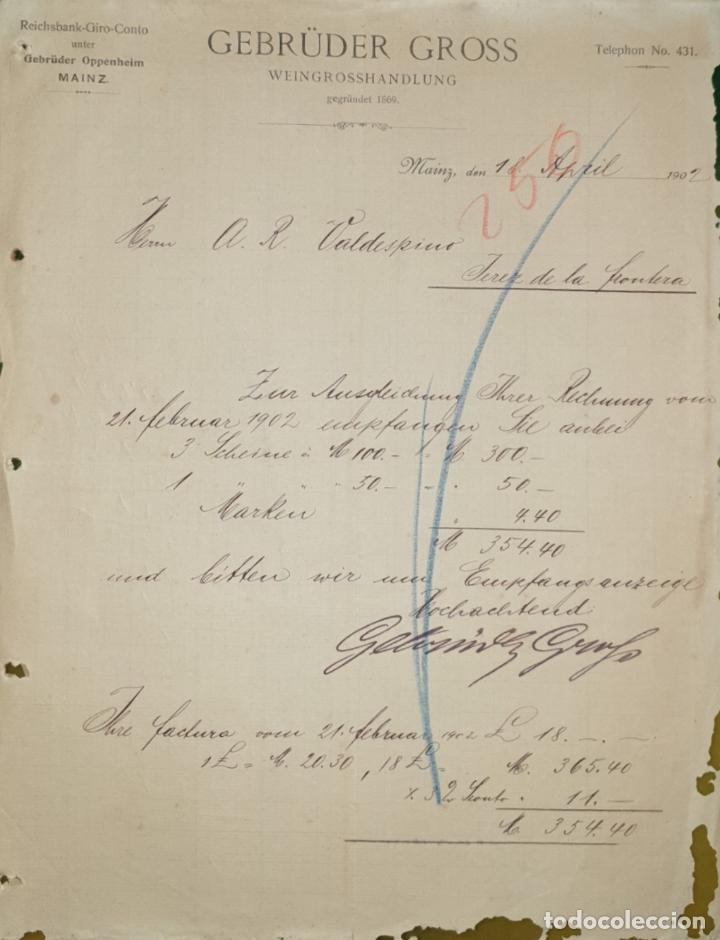 Reichsbank-Giro-Conto
unter
Gebrüder Oppenheim
MAINZ.
GEBRÜDER GROSS
WEINGROSSHANDLUNG
gegründet 1869.
Telephon No. 431.
256
Mainz, den April 1902
Herrn A. R. Valdespino
Jerez de la frontera
Zur Ihrer Rechnung vom
21. februar 1902 empfangen Sie anbei
3 Scheine à M 100.- M 300.-
1 " " 50.- " 50.-
Marken " 4.40
M 354.40
und bitten wir um Empfangsanzeige
Hochachtend
Gebrüder Gross
Ihre factura vom 21. februar 1902 £ 18.-.-
1 £ = M. 20.30, 18 £ = M. 365.40
% 3 Sconto " 11.-
M 354.40
todocoleccion